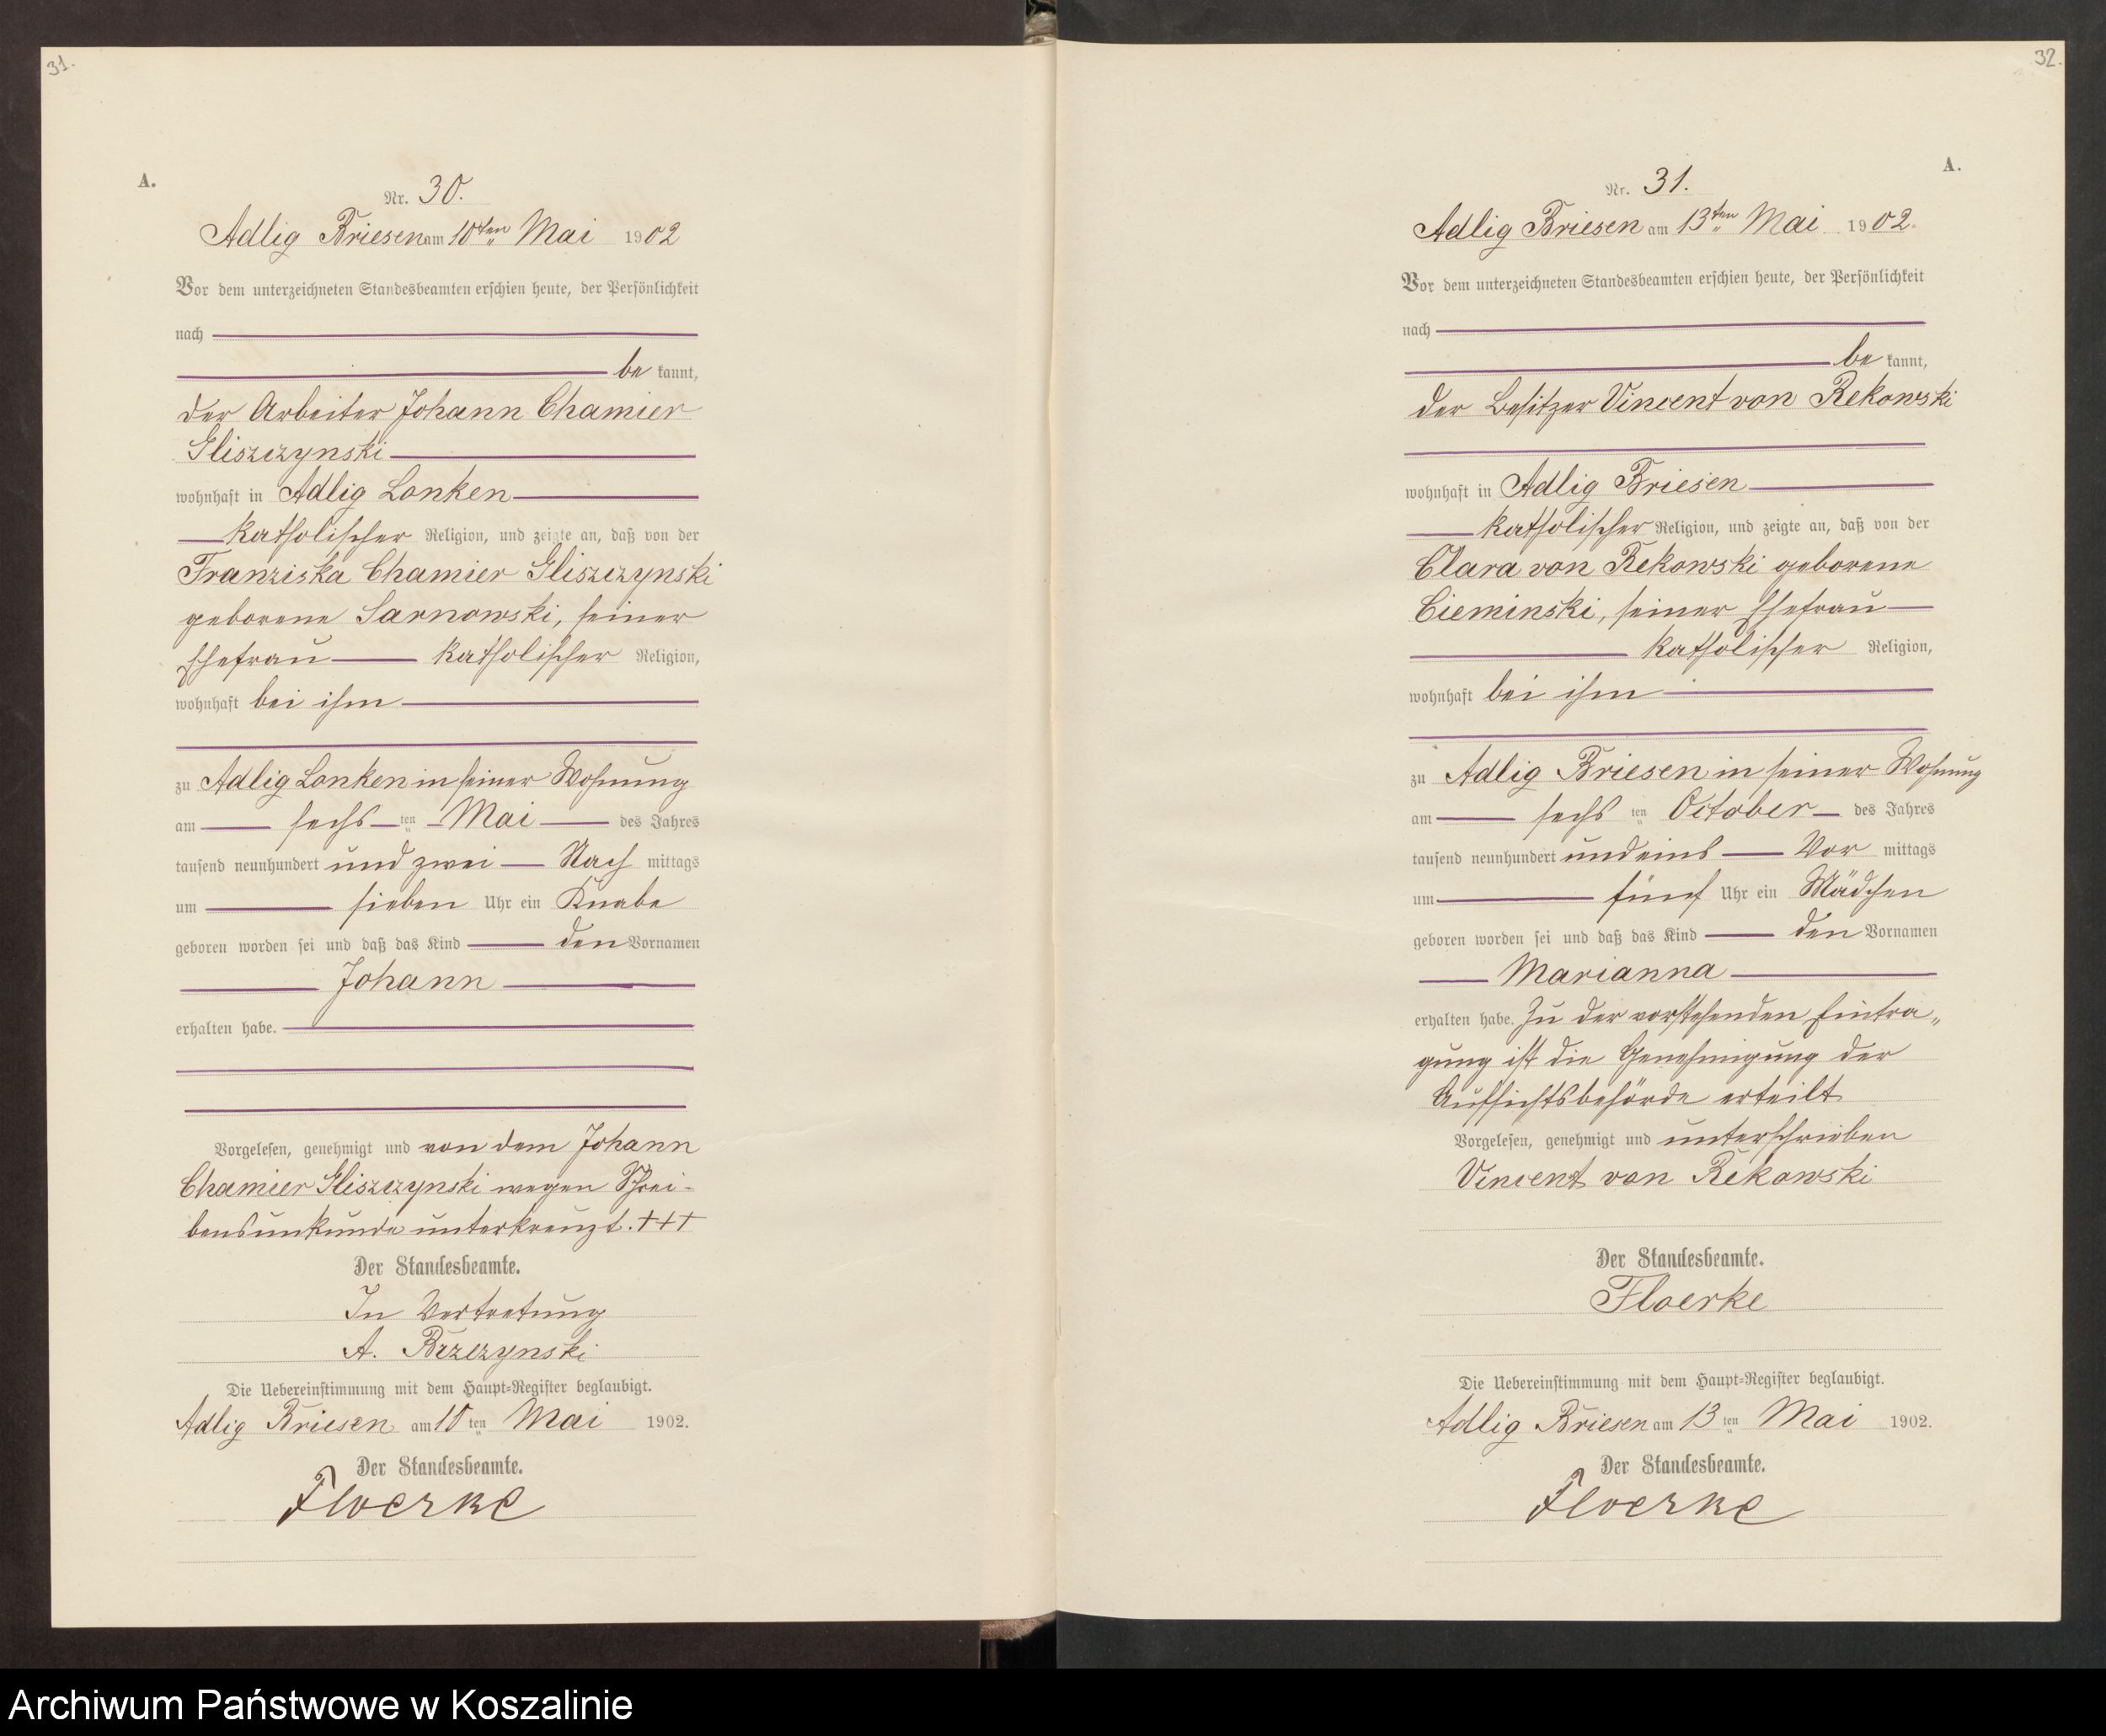 31.
A.
Nr. 30.
Adlig Briesen am 10ten Mai 1902
Vor dem unterzeichneten Standesbeamten erschien heute, der Persönlichkeit
nach
be kannt,
der Arbeiter Johann Chamier
Gliszczynski
wohnhaft in Adlig Lonken
katholischer Religion, und zeigte an, daß von der
Franziska Chamier Gliszczynski
geborene Sarnowski, seiner
Ehefrau katholischer Religion,
wohnhaft bei ihm
zu Adlig Lonken in seiner Wohnung
am sechs ten Mai des Jahres
tausend neunhundert und zwei Nach mittags
um sieben Uhr ein Knabe
geboren worden sei und daß das Kind den Vornamen
Johann
erhalten habe.
Vorgelesen, genehmigt und von dem Johann
Chamier Gliszczynski wegen Schrei-
bensunkunde unterkreuzt. +++
Der Standesbeamte.
In Vertretung
A. Brzezynski
Die Uebereinstimmung mit dem Haupt-Register beglaubigt.
Adlig Briesen am 10 ten Mai 1902.
Der Standesbeamte.
Floerke
32.
A.
Nr. 31.
Adlig Briesen am 13ten Mai 1902.
Vor dem unterzeichneten Standesbeamten erschien heute, der Persönlichkeit
nach
be kannt,
der Besitzer Vincent von Rekowski
wohnhaft in Adlig Briesen
katholischer Religion, und zeigte an, daß von der
Clara von Rekowski geborene
Cieminski, seiner Ehefrau
katholischer Religion,
wohnhaft bei ihm
zu Adlig Briesen in seiner Wohnung
am sechs ten October des Jahres
tausend neunhundert und eins Vor mittags
um fünf Uhr ein Mädchen
geboren worden sei und daß das Kind den Vornamen
Marianna
erhalten habe. Zu der vorstehenden Eintra„
gung ist die Genehmigung der
Aufsichtsbehörde erteilt
Vorgelesen, genehmigt und unterschrieben
Vincent von Rekowski
Der Standesbeamte.
Floerke
Die Uebereinstimmung mit dem Haupt-Register beglaubigt.
Adlig Briesen am 13 ten Mai 1902.
Der Standesbeamte.
Floerke
Archiwum Państwowe w Koszalinie